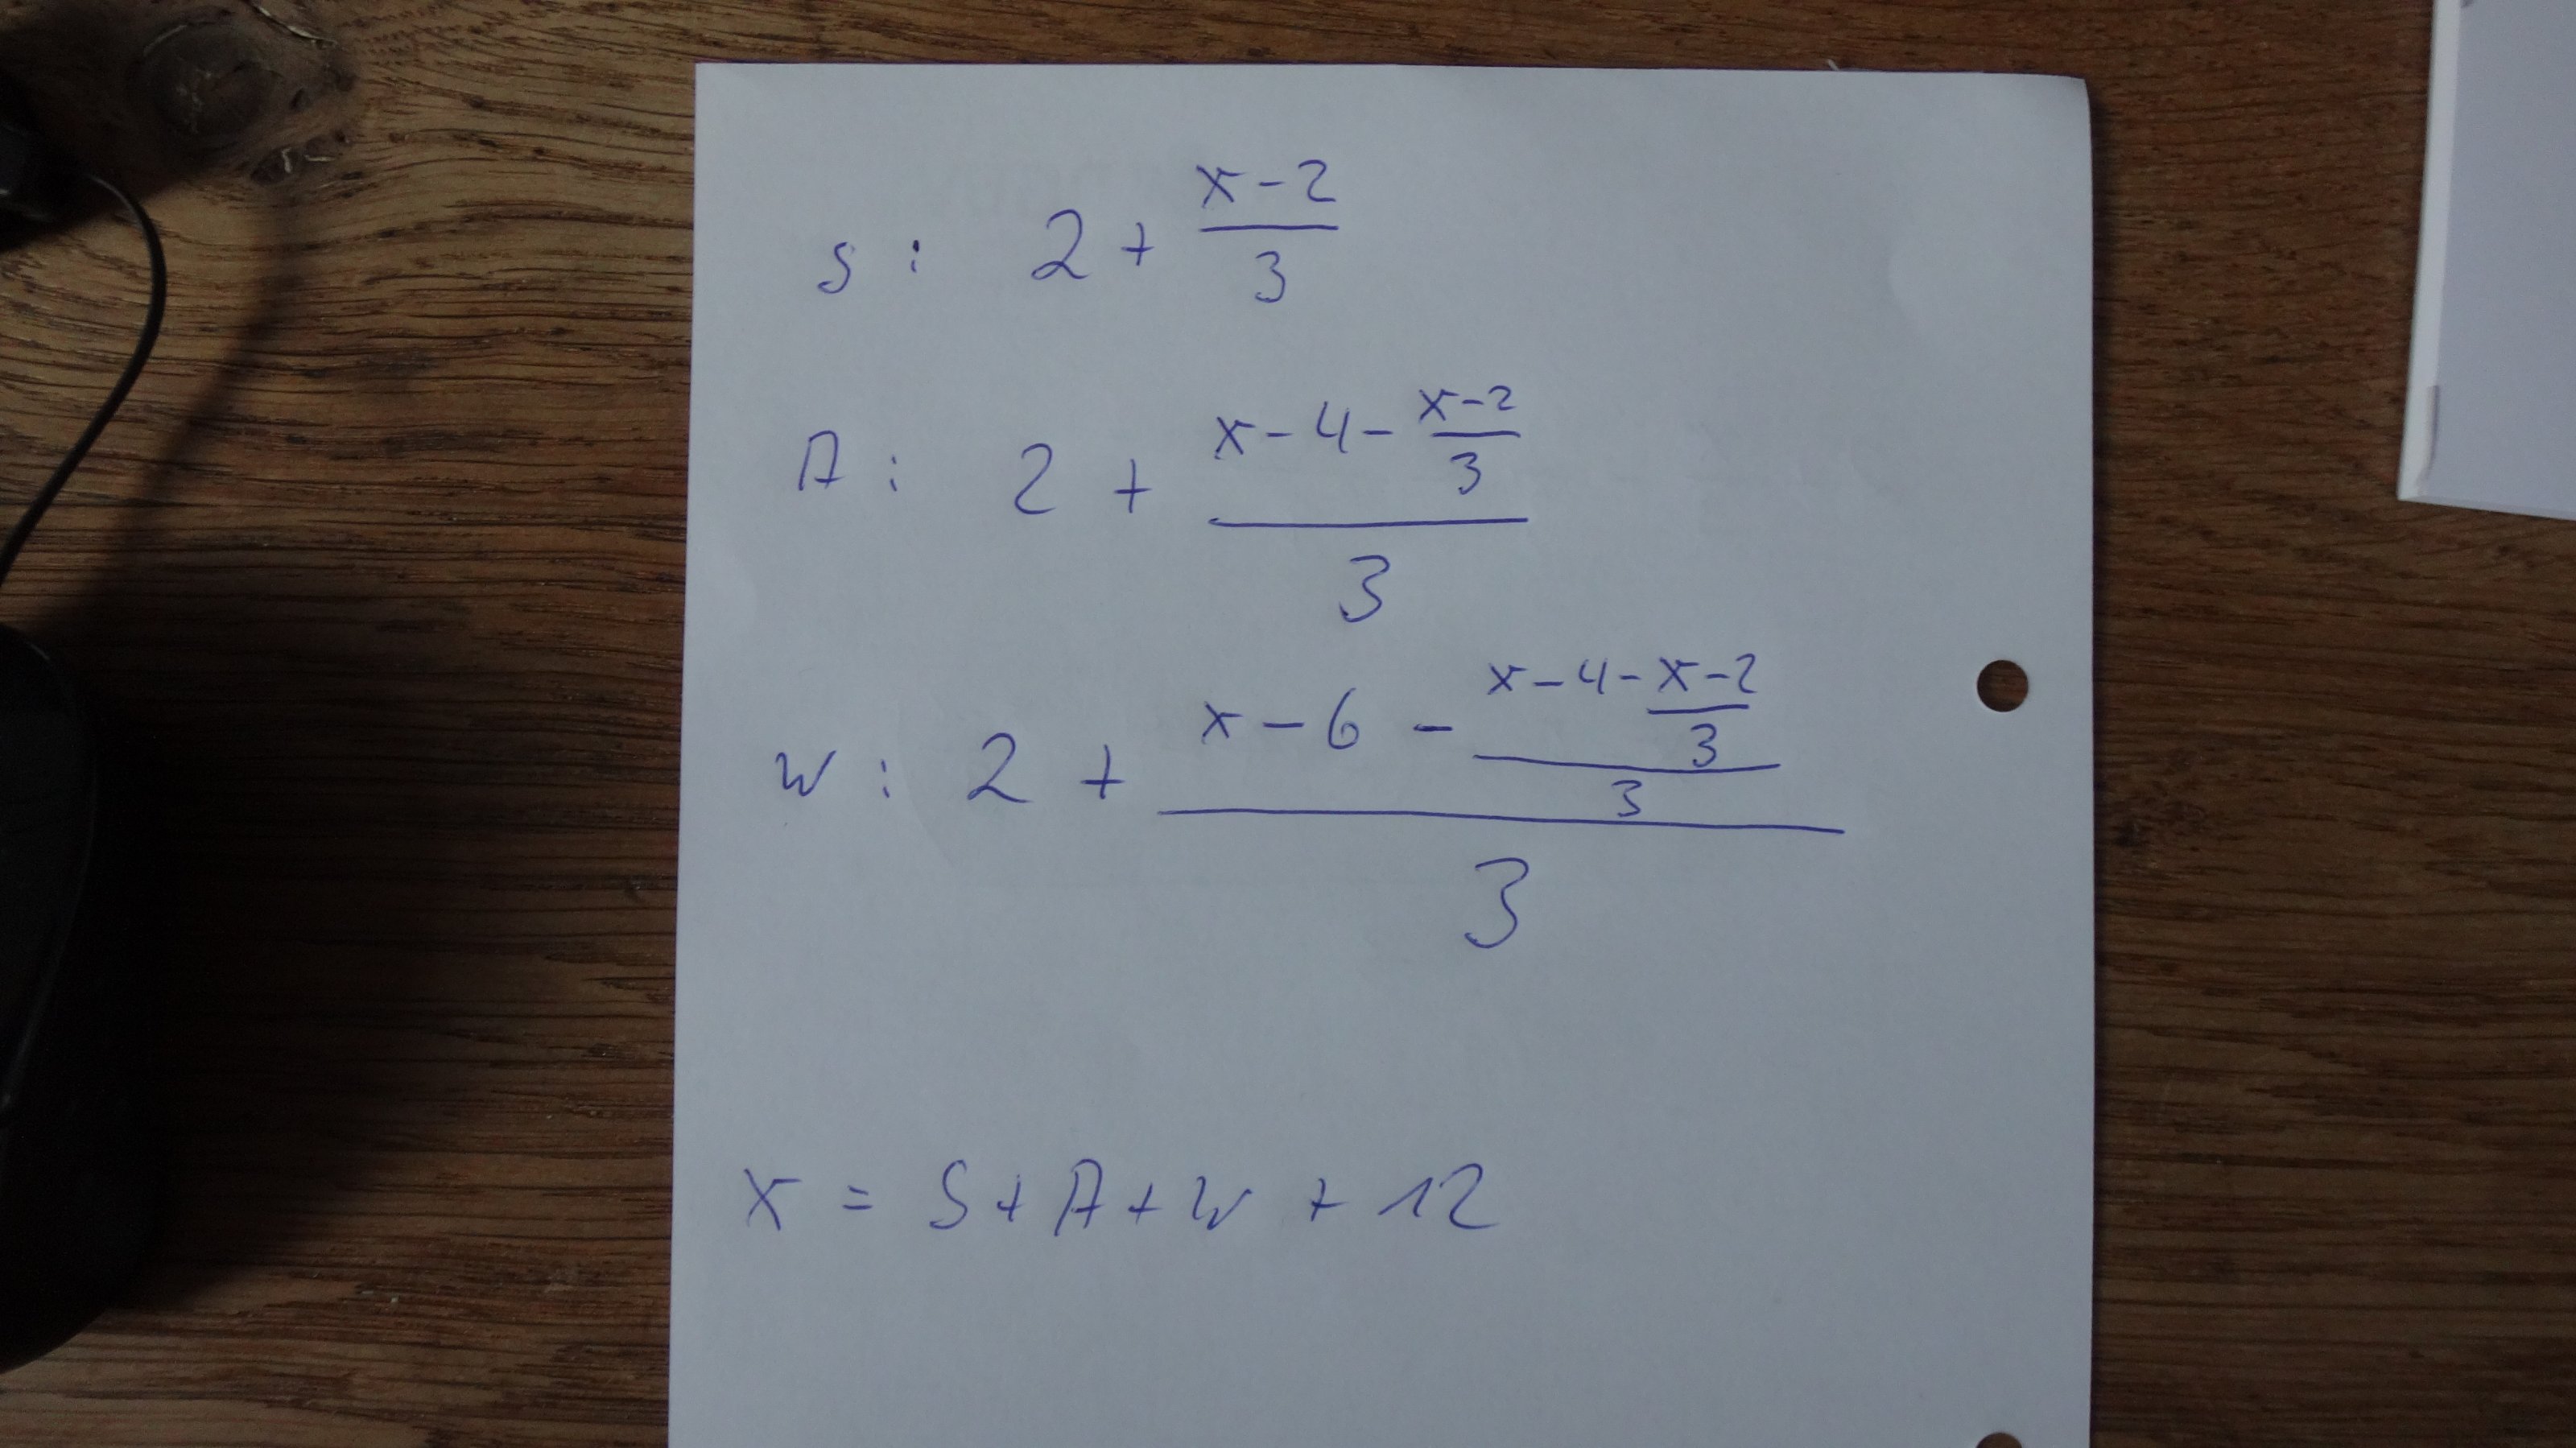 S : 2 + \frac{x-2}{3}
A : 2 + \frac{x-4-\frac{x-2}{3}}{3}
W : 2 + \frac{x-6-\frac{x-4-\frac{x-2}{3}}{3}}{3}
X = S + A + W + 12